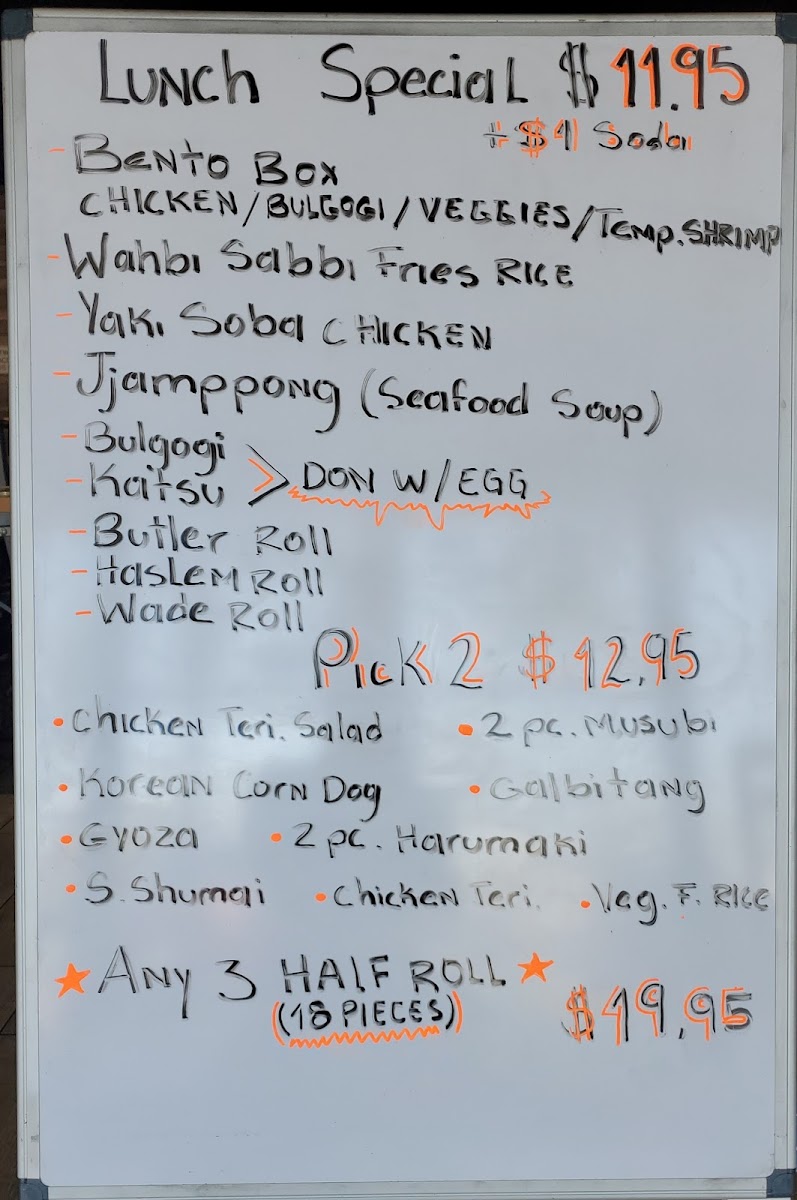 Lunch Special $11.95
+ $1 Soda
- Bento Box
CHICKEN/BULGOGI/VEGGIES/Temp.SHRIMP
- Wahbi Sabbi Fries RICE
- Yaki Soba CHICKEN
- Jjamppong (Seafood Soup)
- Bulgogi
- Kaitsu > DON W/EGG
- Butler Roll
- Haslem Roll
- Wade Roll
Pick 2 $12.95
• Chicken Teri. Salad • 2 pc. Musubi
• Korean Corn Dog • Galbitang
• Gyoza • 2 pc. Harumaki
• S. Shumai • Chicken Teri. • Veg. F. RICE
★ Any 3 HALF ROLL ★
(18 PIECES) $19.95